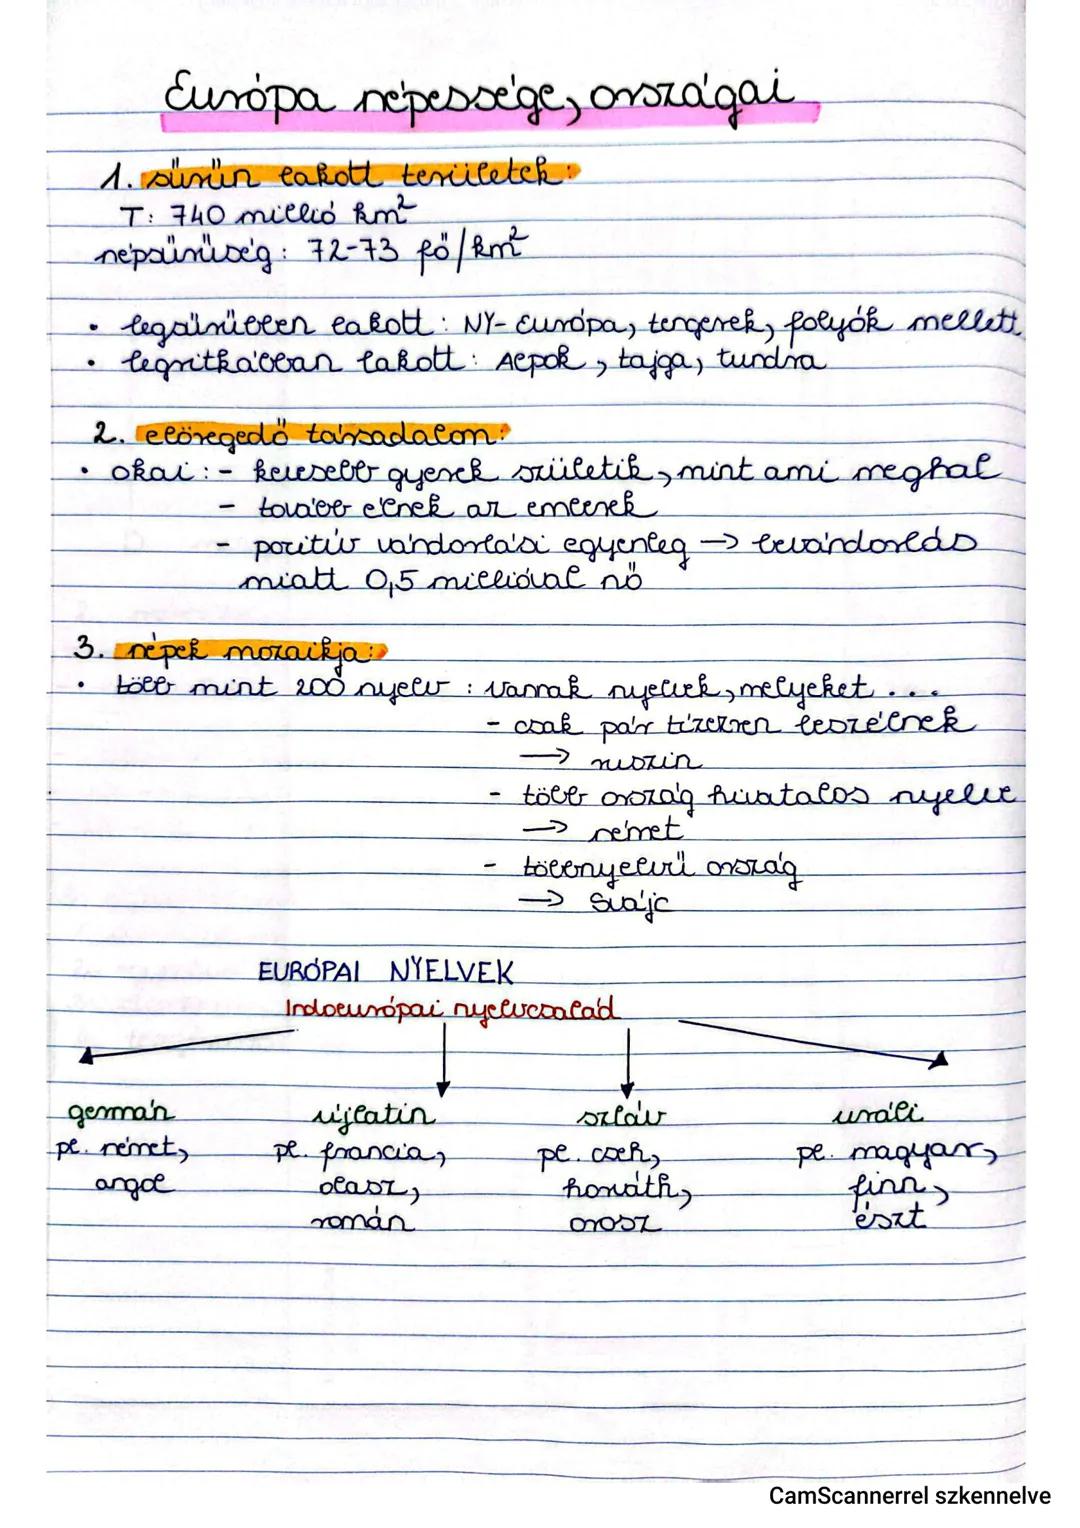 Európa népessége, országai
1. sűrűn lakott területek:
T: 740 millió km²
népsűrűség: 72-73 fő/km²
• legsűrűbben lakott: NY-Európa, tengerek, folyók mellett
• legritkábban lakott: Alpok, tajga, tundra
2. elöregedő társadalom:
• okai: - kevesebb gyerek születik, mint ami meghal
- tovább élnek az emberek
- pozitív vándorlási egyenleg → bevándorlás
miatt 0,5 millióval nő
3. népek mozaikja:
• több mint 200 nyelv: vannak nyelvek, melyeket ...
- csak pár tízezren beszélnek
→ ruszin
- több ország hivatalos nyelve
→ német
- többnyelvű ország
→ Svájc
EURÓPAI NYELVEK
Indoeurópai nyelvcsalád
germán újlatin szláv uráli
pl. német, pl. francia, pl. cseh, pl. magyar,
angol olasz, horváth, finn,
román orosz észt
CamScannerrel szkennelve